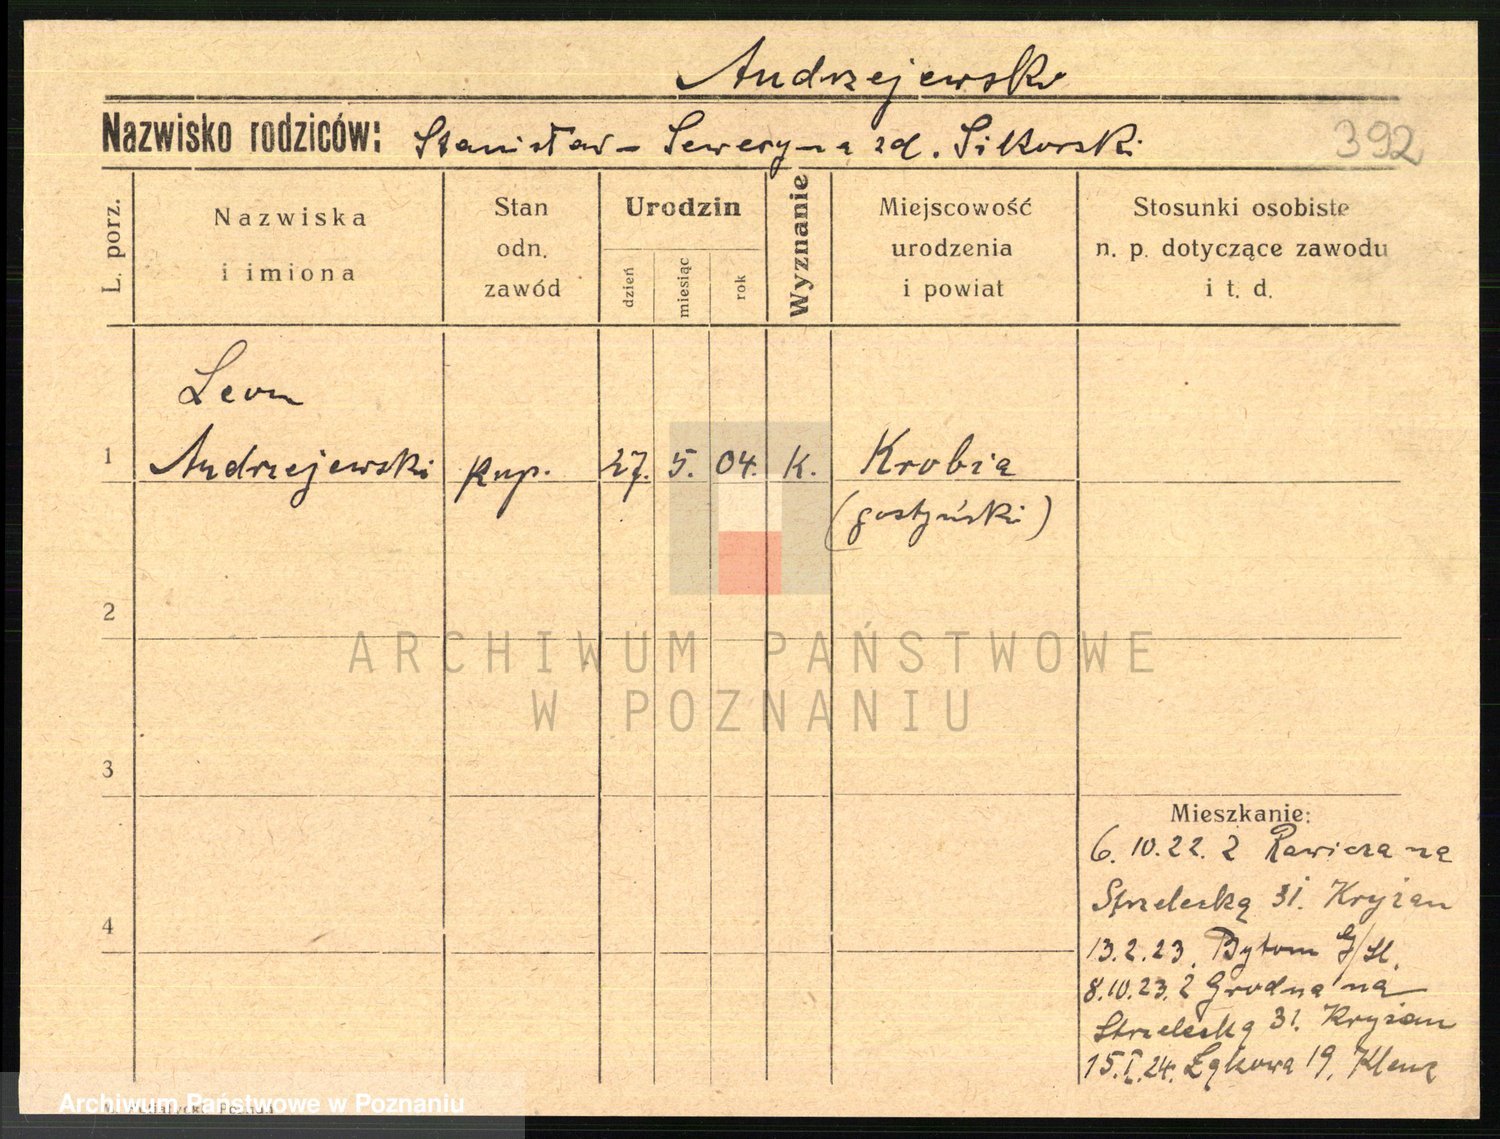 Andrzejewski
Nazwisko rodziców: Stanisław - Seweryna zd. Sikorski
392
L. porz.
Nazwiska
i imiona
Stan
odn.
zawód
Urodzin
dzień
miesiąc
rok
Wyznanie
Miejscowość
urodzenia
i powiat
Stosunki osobiste
n. p. dotyczące zawodu
i t. d.
Leon
1 Andrzejewski kup. 27. 5. 04. K. Krobia
(gostyński)
2
ARCHIWUM PAŃSTWOWE
W POZNANIU
3
Mieszkanie:
6.10.22. z Rawicza na
Strzelecką 31. Kryżan
4
13.2.23. Bytom G/Sl.
8.10.23. z Grodna na
Strzelecką 31. Kryżan
15.I.24. Łąkowa 19.
Archiwum Państwowe w Poznaniu